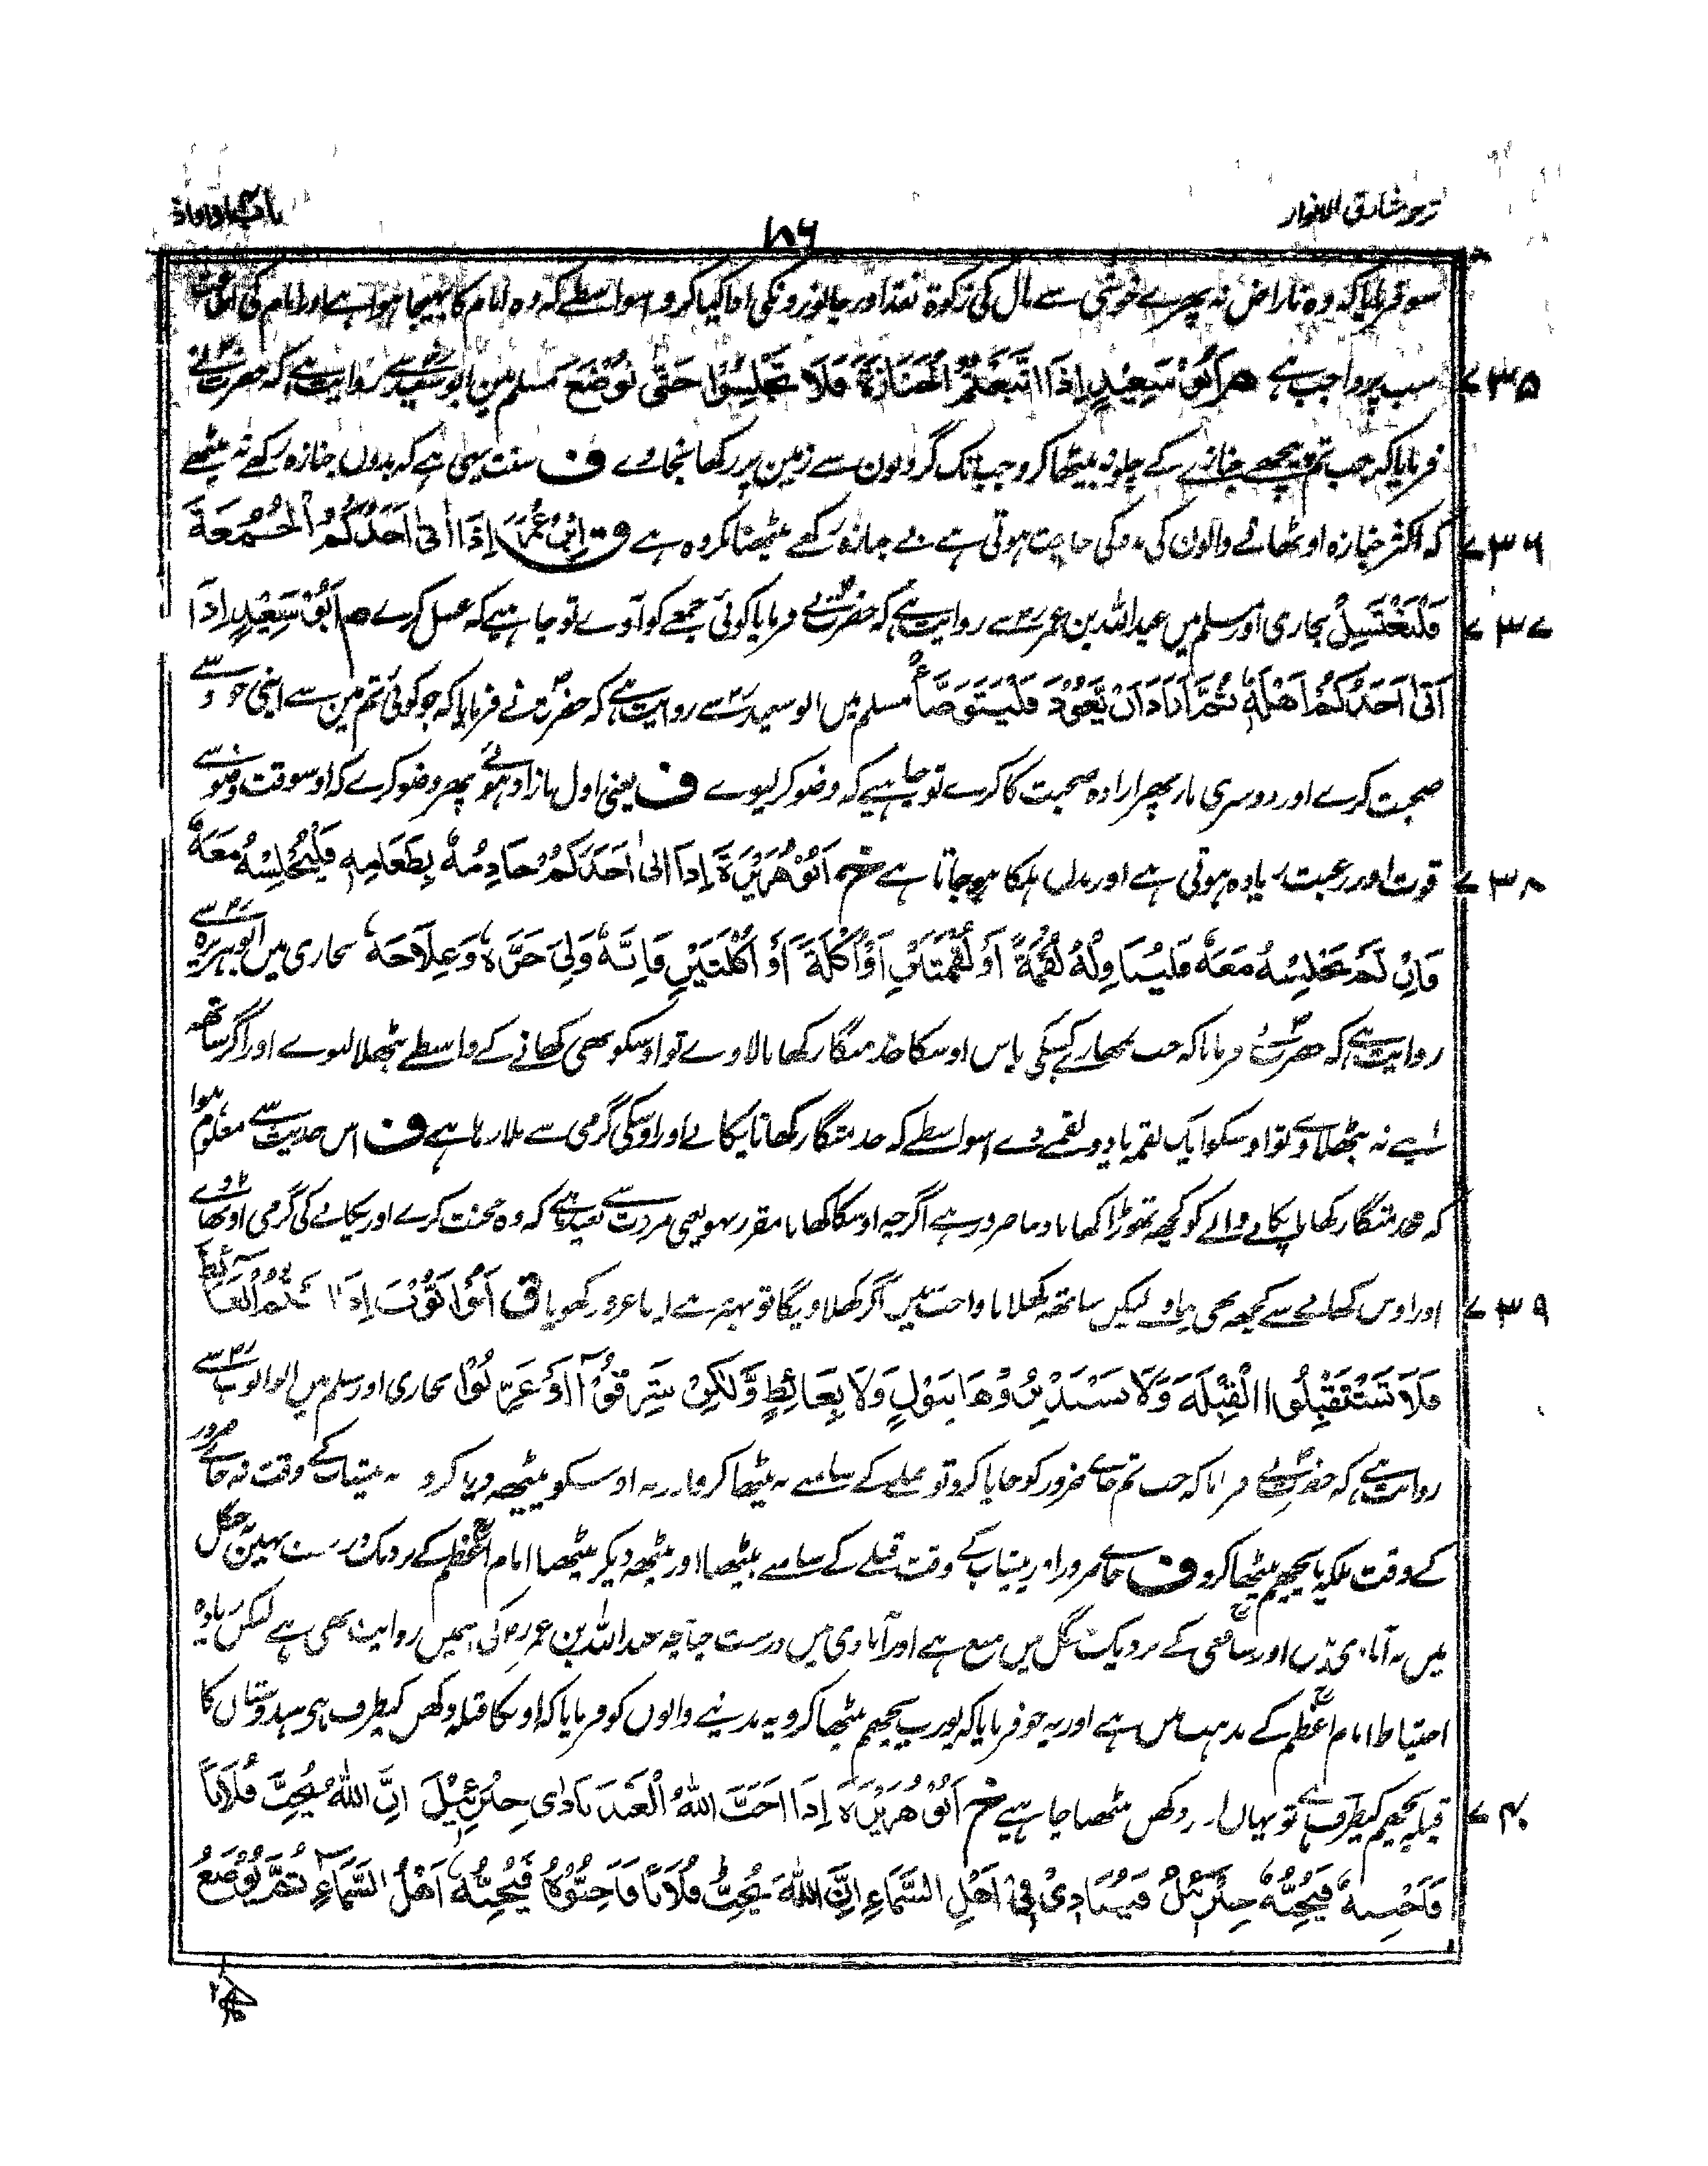 ترجمہ مشارق الانوار
۱۸۶
سو فرمایا کہ وہ ناراض نہ پھرے خوشی سے مال کی زکوۃ نقد اور جانورونکی ادا کیا کرو اسواسطے کہ وہ امام کا بھیجا ہوا ہے اور امام کی
۷۳۵ سب پر واجب ہے م اَبُوْ سَعِيْدٍ اِذَا اتَّبَعْتُمُ الْجَنَازَةَ فَلَا تَجْلِسُوْا حَتّٰى تُوْضَعَ مسلم مین ابو سعید رض سے روایت ہے کہ حضرت نے
فرمایا کہ جب تم پیچھے جنازے کے چلو نہ بیٹھا کرو جب تک گردنون سے زمین پر رکھا نجاوے ف سنت یہی ہے کہ بدون جنازہ رکھے نہ بیٹھے
۷۳۶ کہ اکثر جنازہ اوٹھانے والون کی مدد کی حاجت ہوتی ہے بے جنازہ رکھے بیٹھنا مکروہ ہے ق اِبْنُ عُمَرَ اِذَا اَتٰى اَحَدُكُمُ الْجُمُعَةَ
۷۳۷ فَلْيَغْتَسِلْ بخاری اور مسلم میں عبداللہ بن عمر رض سے روایت ہے کہ حضرت نے فرمایا کوئی جمعے کو آوے تو چاہیے کہ غسل کرے م اَبُوْ سَعِيْدٍ اِذَا
اَتٰى اَحَدُكُمْ اَهْلَهٗ ثُمَّ اَرَادَ اَنْ يَّعُوْدَ فَلْيَتَوَضَّأْ مسلم میں ابو سعید رض سے روایت ہے کہ حضرت نے فرمایا کہ جو کوئی تم مین سے اپنی جورو سے
صحبت کرے اور دوسری بار پھر ارادہ صحبت کا کرے تو چاہیے کہ وضو کر لیوے ف یعنی اول پھر وضو کرے کہ اوسوقت وضو سے
۷۳۸ قوت اور رغبت زیادہ ہوتی ہے اور بدن ہلکا ہو جاتا ہے خ م اَبُوْ هُرَيْرَةَ اِذَا اَتٰى اَحَدَكُمْ خَادِمُهٗ بِطَعَامِهٖ فَلْيُجْلِسْهُ مَعَهٗ
فَاِنْ لَّمْ يُجْلِسْهُ مَعَهٗ فَلْيُنَاوِلْهُ لُقْمَةً اَوْ لُقْمَتَيْنِ اَوْ اُكْلَةً اَوْ اُكْلَتَيْنِ فَاِنَّهٗ وَلِىَ حَرَّهٗ وَعِلَاجَهٗ بخاری میں ابو ہریرہ رض سے
روایت ہے کہ حضرت نے فرمایا کہ جب تمھارے کسیکی پاس اوسکا خدمتگار کھانا لاوے تو اوسکو بھی کھانے کے واسطے بٹھلا لیوے اور اگر ساتھ
اپنے نہ بٹھلاوے تو اوسکو ایک لقمہ یا دو لقمے دے اسواسطے کہ خدمتگار کھانا پکانے اور اوسکی گرمی سے ملا رہا ہے ف اس حدیث سے معلوم ہوا
کہ خدمتگار کھانا پکانے والے کو کچھ تھوڑا کھانا دینا ضرور ہے اگرچہ اوسکا کھانا مقرر نہو یعنی مروت سے بعید ہے کہ وہ محنت کرے اور پکانے کی گرمی اوٹھاوے
۷۳۹ اور اوس کھانے سے کچھ بھی نپاوے لیکن ساتھ کھلانا واجب نہیں اگر کھلاویگا تو بہتر ہے اپنا غرور کھویا ق اَبُوْ اَيُّوْبَ اِذَا اَتَيْتُمُ الْغَائِطَ
فَلَا تَسْتَقْبِلُوا الْقِبْلَةَ وَلَا تَسْتَدْبِرُوْهَا بِبَوْلٍ وَلَا بِغَائِطٍ وَّلٰكِنْ شَرِّقُوْا اَوْ غَرِّبُوْا بخاری اور مسلم میں ابو ایوب رض سے
روایت ہے کہ حضرت نے فرمایا کہ جب تم جائے ضرور کو جایا کرو تو قبلے کے سامنے نہ بیٹھا کرو اور نہ اوسکو پیٹھ دیا کرو نہ پیشاب کے وقت نہ جائے ضرور
کے وقت بلکہ پورب پچھم بیٹھا کرو ف جائے ضرور اور پیشاب کے وقت قبلے کے سامنے بیٹھنا اور پیٹھ دیکر بیٹھنا امام اعظم کے نزدیک درست نہین نہ جنگل
میں نہ آبادی میں اور شافعی کے نزدیک جنگل میں منع ہے اور آبادی میں درست چنانچہ عبداللہ بن عمر رض کی اسمیں روایت بھی ہے لیکن زیادہ
احتیاط امام اعظم کے مذہب میں ہے اور یہ جو فرمایا کہ پورب پچھم بیٹھا کرو یہ مدینے والوں کو فرمایا کہ اونکا قبلہ دکھن کیطرف ہی ہندوستان کا
۷۴۰ قبلہ پچھم کیطرف ہے تو یہاں اتر دکھن بیٹھنا چاہیے خ م اَبُوْ هُرَيْرَةَ اِذَا اَحَبَّ اللّٰهُ الْعَبْدَ نَادٰى جِبْرَئِيْلَ اِنَّ اللّٰهَ يُحِبُّ فُلَانًا
فَاَحْبِبْهُ فَيُحِبُّهٗ جِبْرَئِيْلُ فَيُنَادِىْ فِىْ اَهْلِ السَّمَاءِ اِنَّ اللّٰهَ يُحِبُّ فُلَانًا فَاَحِبُّوْهُ فَيُحِبُّهٗ اَهْلُ السَّمَاءِ ثُمَّ يُوْضَعُ